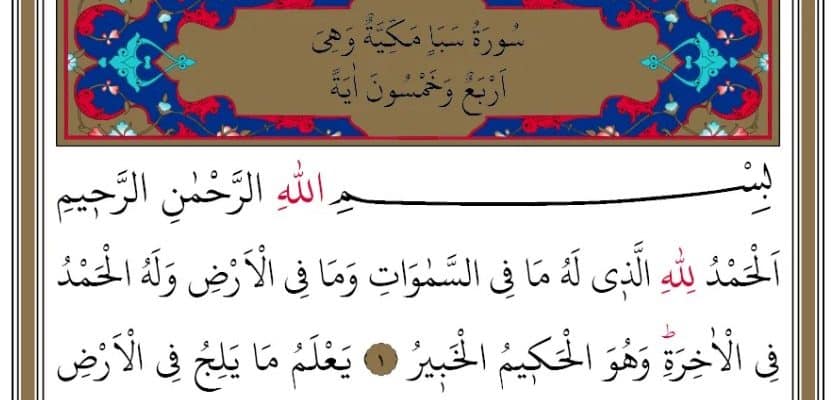 سُورَةُ سَبَاٍ مَكِّيَّةٌ وَهِىَ
اَرْبَعٌ وَخَمْسُونَ اٰيَةً
بِسْــــــــــــمِ اللّٰهِ الرَّحْمٰنِ الرَّح۪يمِ
اَلْحَمْدُ لِلّٰهِ الَّذ۪ى لَهُ مَا فِى السَّمٰوَاتِ وَمَا فِى الْاَرْضِ وَلَهُ الْحَمْدُ
فِى الْاٰخِرَةِۜ وَهُوَ الْحَك۪يمُ الْخَب۪يرُ ﴿١﴾ يَعْلَمُ مَا يَلِجُ فِى الْاَرْضِ